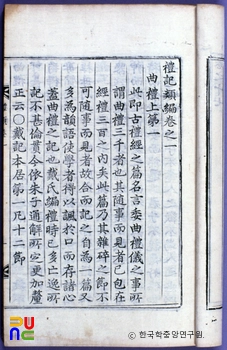 禮記類編卷之一
曲禮上第一
此即古禮經之篇名言委曲禮儀之事所
謂曲禮三千者也其隨事而見者已包在
經禮三百之內矣此篇乃其雜碎之節不
可隨事而見者故合而記之自為一篇又
多為韻語使學者得以諷於口而存諸心
蓋曲禮之記也戴氏編禮時已多亡逸所
記不甚倫貫今依朱子通解所定更加釐
正云○戴記本居第一凡十二節
© 한국학중앙연구원